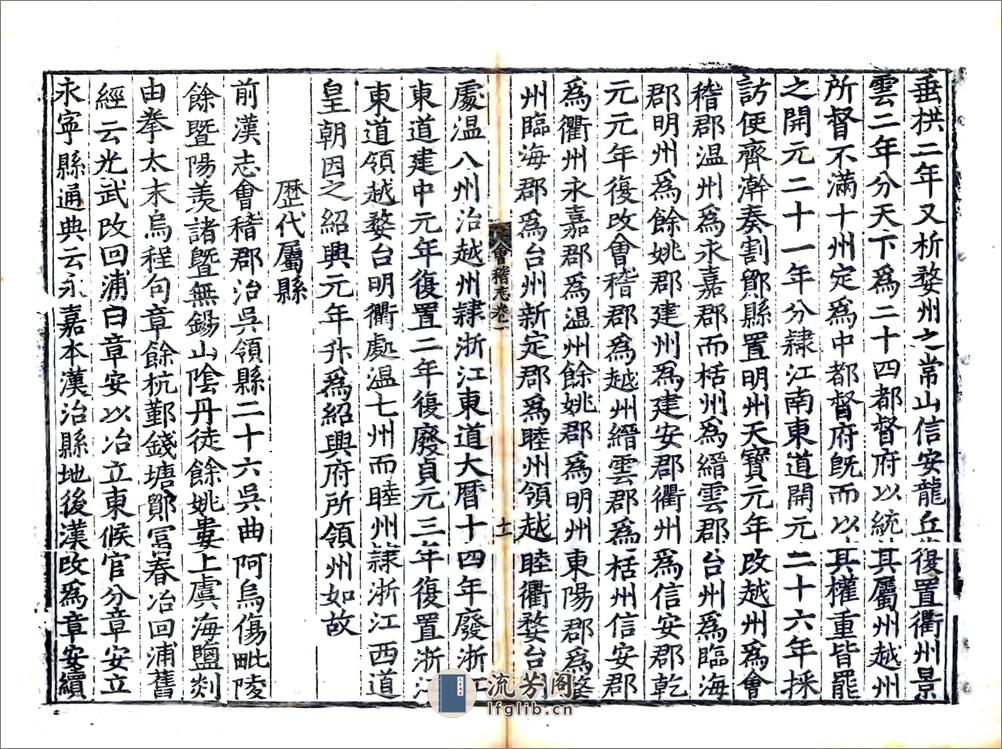 垂拱二年又析婺州之常山信安龍丘復置衢州景
雲二年分天下爲二十四都督府以統其屬州越州
所督不滿十州定爲中都督府既而以其權重皆罷
之開元二十一年分隷江南東道開元二十六年採
訪使齊澣奏割鄮縣置明州天寶元年改越州爲會
稽郡温州爲永嘉郡而栝州爲縉雲郡台州爲臨海
郡明州爲餘姚郡建州爲建安郡衢州爲信安郡乾
元元年復改會稽郡爲越州縉雲郡爲栝州信安郡
爲衢州永嘉郡爲温州餘姚郡爲明州東陽郡爲婺
州臨海郡爲台州新定郡爲睦州領越睦衢婺台
處温八州治越州隷浙江東道大曆十四年廢浙江
東道建中元年復置二年復廢貞元三年復置浙江
東道領越婺台明衢處温七州而睦州隷浙江西道
皇朝因之紹興元年升爲紹興府所領州如故
歷代屬縣
前漢志會稽郡治吳領縣二十六吳曲阿烏傷毗陵
餘暨陽羡諸暨無錫山陰丹徒餘姚婁上虞海鹽剡
由拳太末烏程句章餘杭鄞錢塘鄮富春冶回浦舊
經云光武改回浦曰章安以冶立東候官分章安立
永寧縣通典云永嘉本漢治縣地後漢改爲章安續
會稽志卷一
十一
流芳阁
lfglib.cn